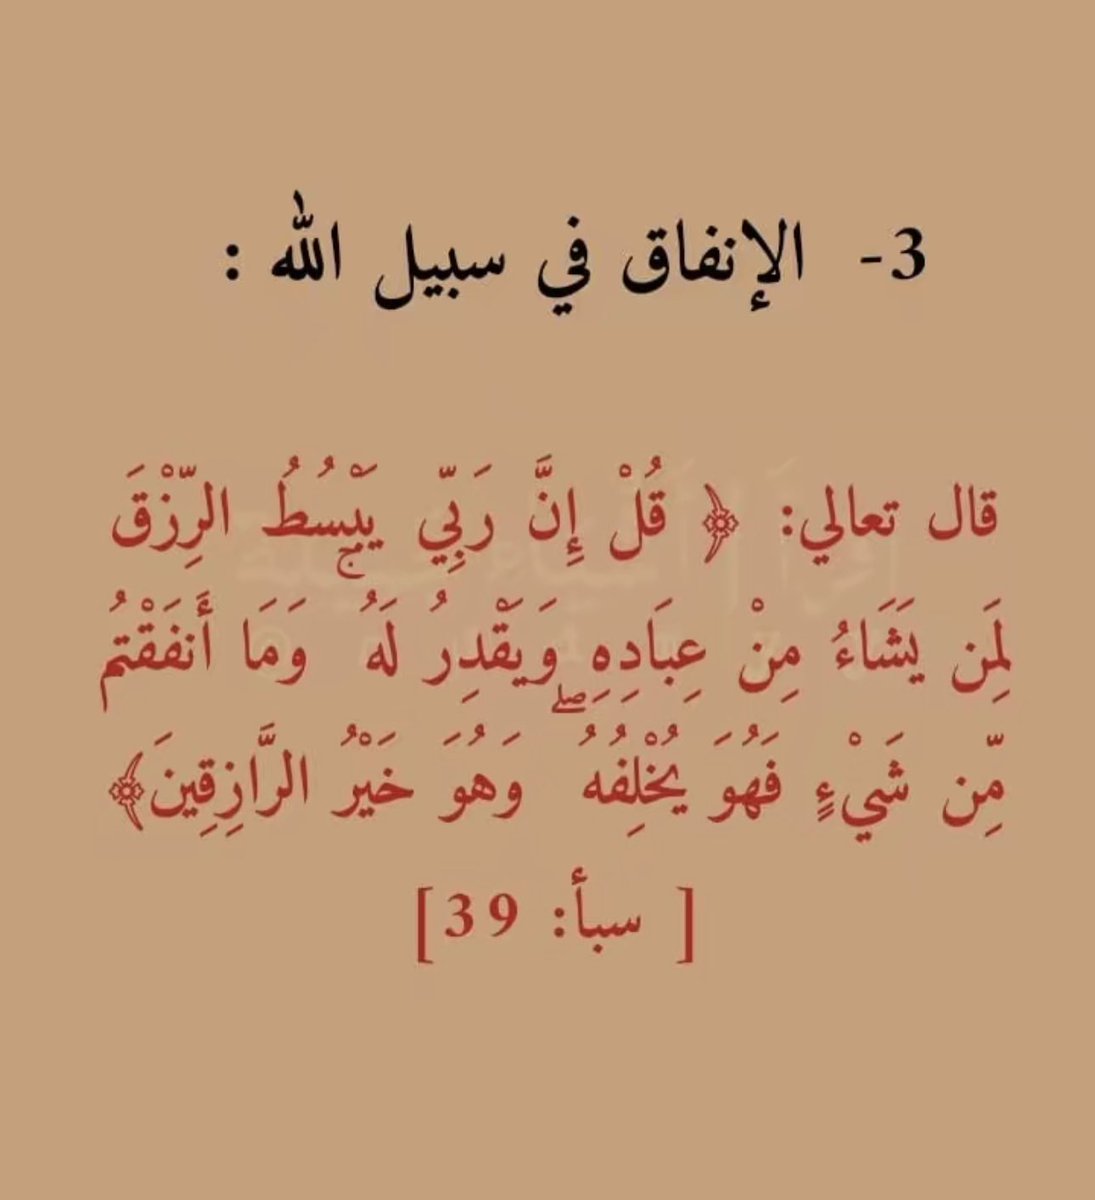 3- الإنفاق في سبيل الله :
قال تعالي: ﴿ قُلْ إِنَّ رَبِّي يَبْسُطُ الرِّزْقَ
لِمَن يَشَاءُ مِنْ عِبَادِهِ وَيَقْدِرُ لَهُ ۚ وَمَا أَنفَقْتُم
مِّن شَيْءٍ فَهُوَ يُخْلِفُهُ ۖ وَهُوَ خَيْرُ الرَّازِقِينَ﴾
[ سبأ: 39]